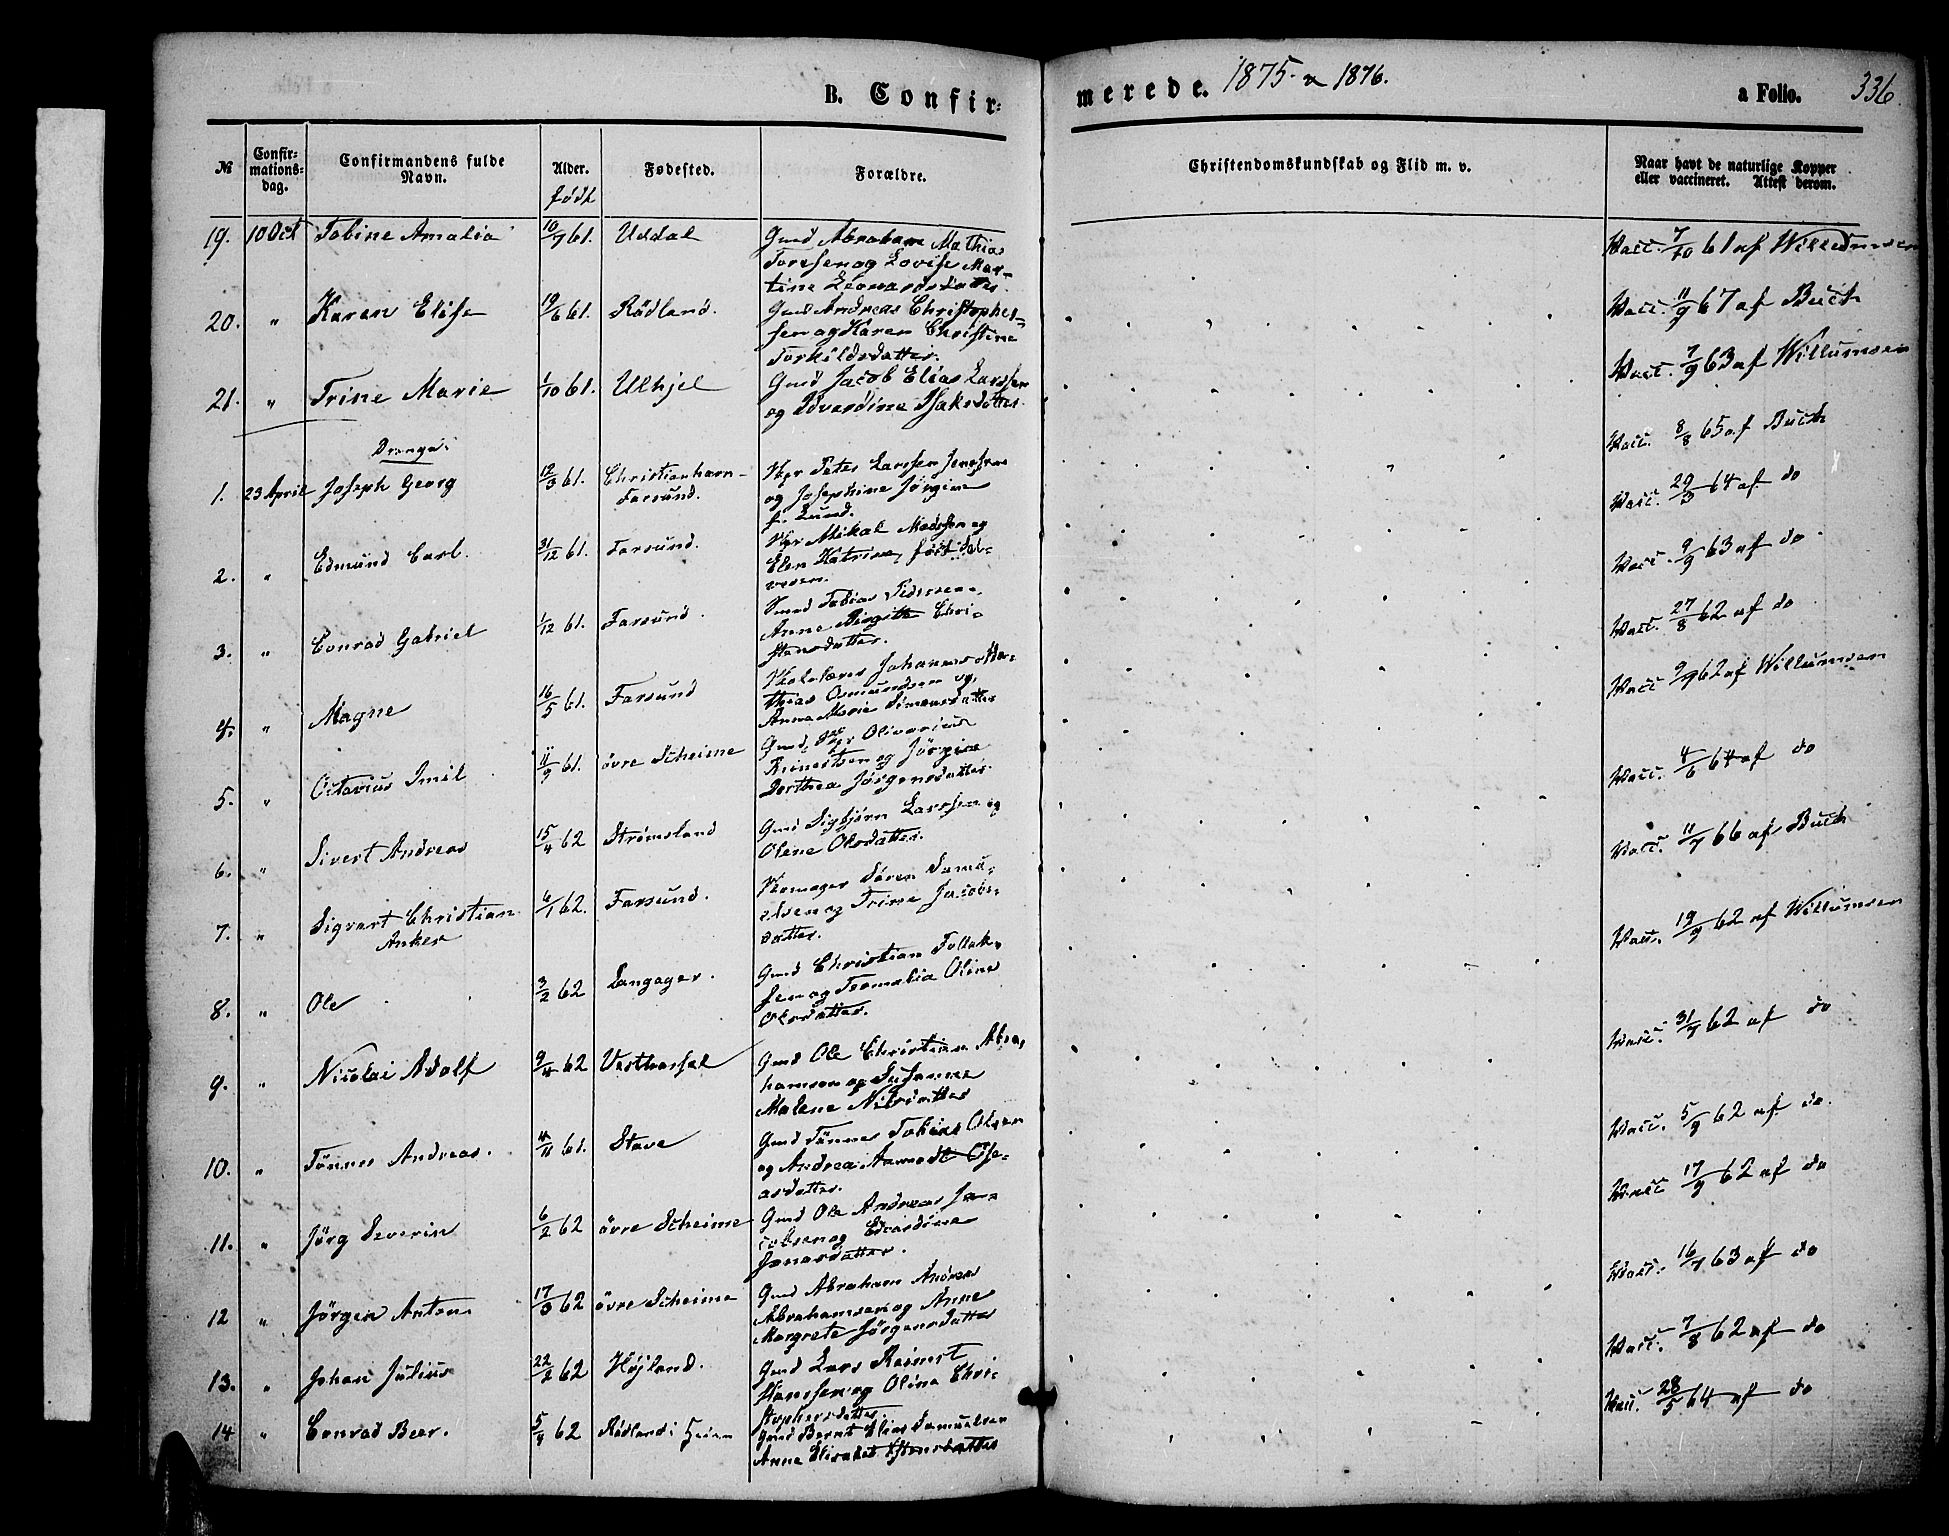 B. Confir-
merede. 1875 & 1876.
a Folio. 336.
№
Confir-
mations-
dag.
Confirmandens fulde
Navn.
Alder.
født
Fødested.
Forældre.
Christendomskundskab og Flid m. v.
Naar havt de naturlige Kopper
eller vaccineret. Attest derom.
19. 10 Oct Tobine Amalia 10/7 61. Uddal Gmd Abraham Mathias
Toresen og Lovise Mar-
tine Leonardsdatter.
Vacc. 7/10 61 af Willumsen
20. " Karen Elise 19/6 61. Rødland. Gmd Andreas Christopher-
sen og Karen Christine
Torkildsdatter.
Vacc. 11/9 67 af Buch
21. " Trine Marie 1/10 61. Ulhjel Gmd Jacob Elias Larssen
og Edvardine Isaksdatter.
Vacc. 7/9 63 af Willumsen
Drenge:
1. 23 April Joseph Georg 12/3 61. Christianhavn-
Farsund. Peter Larssen
og Josephine Jørgine
f. Lund.
Vacc. 8/8 65 af Buch
2. " Edmund Carl. 31/12 61. Farsund. Mikal Madssen og
Elen Katrine, født
Vacc. 29/9 64 af do
3. " Conrad Gabriel 1/12 61. Farsund. Tobias Pedersen,
Anne Birgitte Chri-
stensdatter.
Vacc. 9/9 63 af do
4. " Magne 16/5 61. Farsund Skolelærer Johannes Ma-
thias Osmundsen og
Anna Marie Simonsdatter
Vacc. 27/8 62 af do
5. " Octavius Emil 11/9 61. øvre Scheime Gmd, Olivarius
Reinertsen og Jørgine
Dorthea Jørgensdatter.
Vacc 9/9 62 af Willumsen
6. " Sivert Andreas 15/4 62 Strømsland Gmd Sigbjørn Larssen og
Olene Olsdatter.
Vacc. 4/6 64 af do
7. " Sigvart Christian
Anker 6/1 62. Farsund. Skomager Søren Samu-
elsen og Trine Jacobs-
datter.
Vacc. 11/7 66 af Buch
8. " Ole 3/2 62 Langager. Gmd Christian Tollak-
sen og Tomalia Oline
Olsdatter.
Vacc. 19/9 62 af Willumsen
9. " Nicolai Adolf 9/4 62 Vesthassel Gmd Ole Christian Abra-
hamsen og Susanne
Malene Nilsdatter
Vacc. 31/7 62 af do
10. " Tønnes Andreas. 4/11 61. Stave Gmd Tønnes Tobias Olsen
og Andrea Aamodt Ose-
asdatter.
Vacc. 5/9 62 af do.
11. " Jørg Severin 6/2 62 øvre Scheime Gmd Ole Andreas Ja-
cobsen og Edvardine
Jonasdatter.
Vacc 17/9 62 af do
12 " Jørgen Anton 17/3 62 øvre Scheime Gmd Abraham Andreas
Abrahamsen og Anne
Margrete Jørgensdatter
Vacc. 16/7 63 af do
13. " Johan Julius 22/2 62 Højland. Gmd Lars Reinert
Hanssen og Olina Chri-
stophersdatter.
Vacc. 7/8 62 af do
14 " Conrad Beer. 5/4 62 Rødland i Heien Gmd Bernt Elias Samuelsen
Anne Elisabet
Vacc. 28/5 64 af do